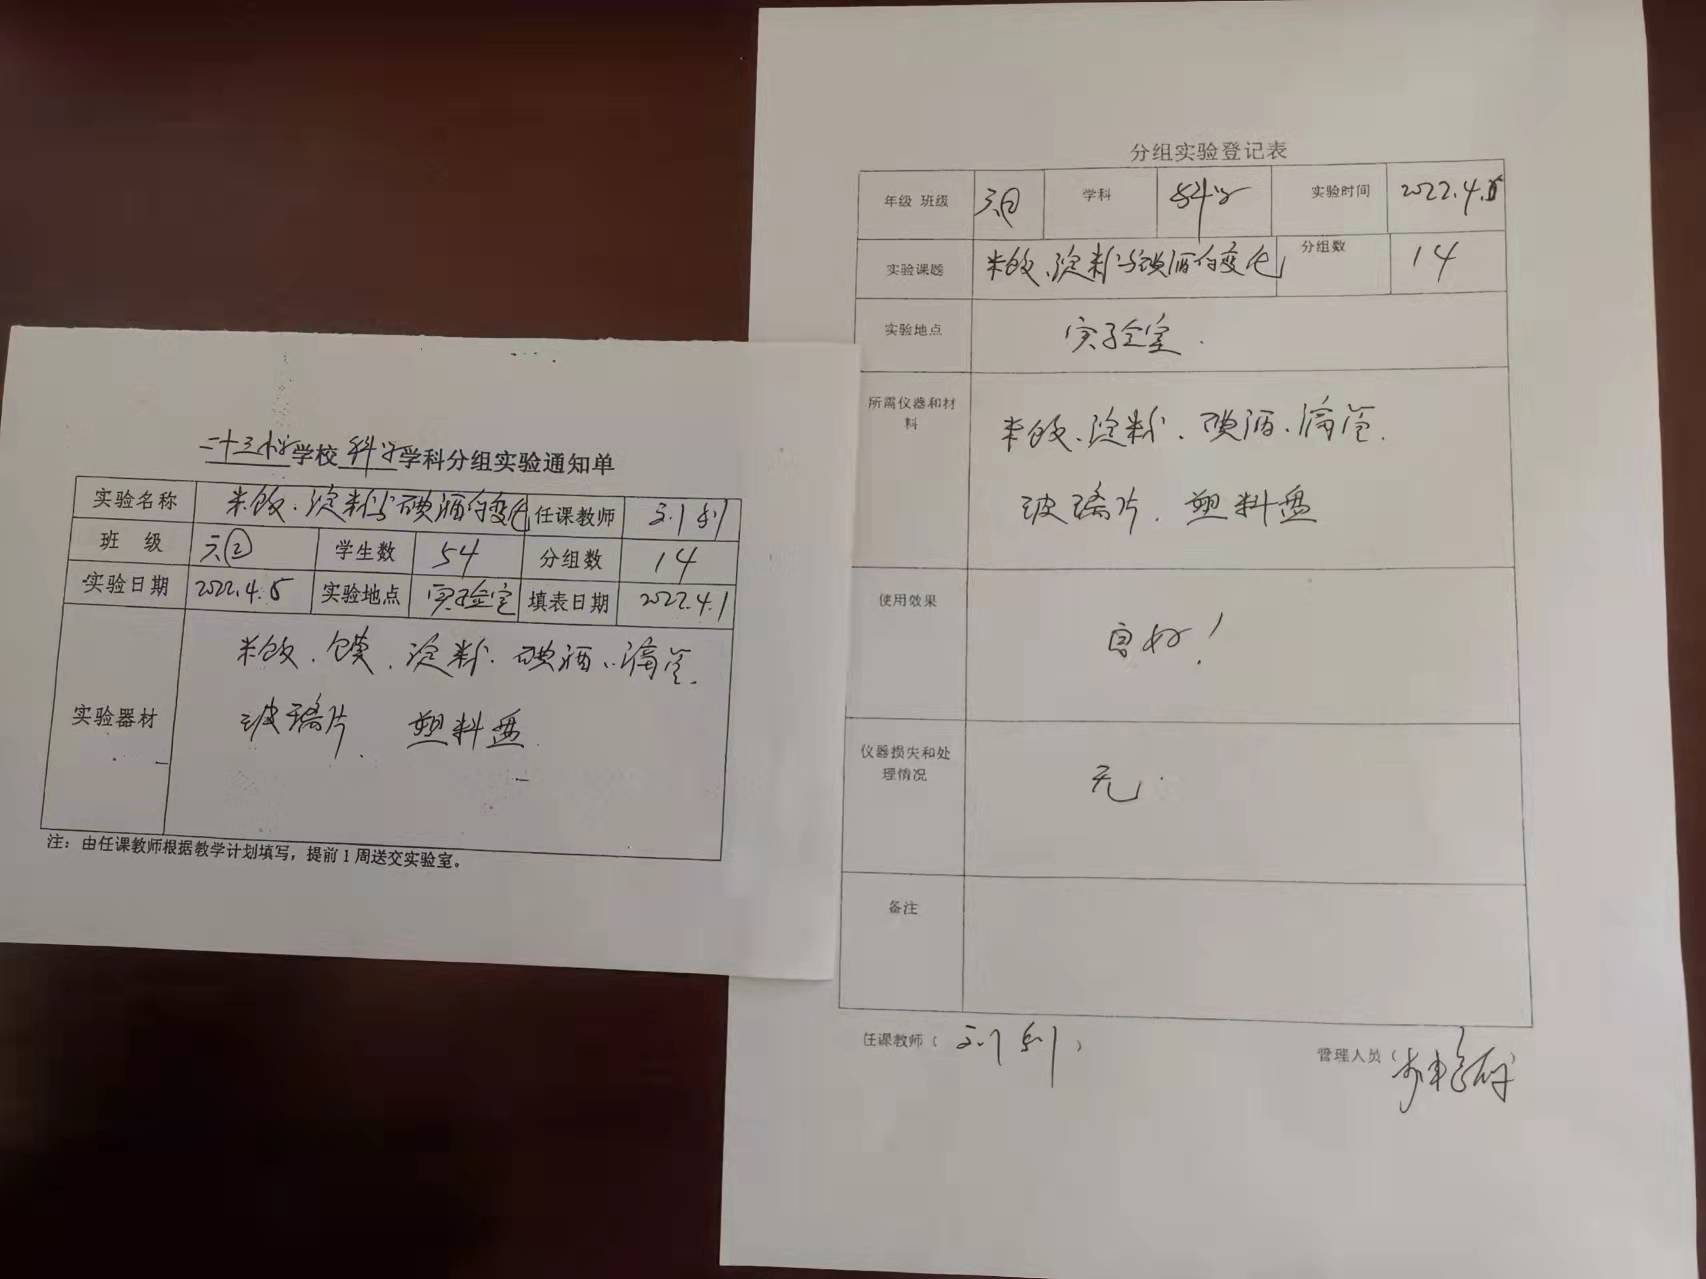 二十三小学学校科学学科分组实验通知单
实验名称 米饭、淀粉与碘酒的变化 任课教师
班 级 六② 学生数 54 分组数 14
实验日期 2022.4.5 实验地点 实验室 填表日期 2022.4.1
实验器材 米饭、馍、淀粉、碘酒、滴管、
玻璃片、塑料盘
注：由任课教师根据教学计划填写，提前1周送交实验室。
分组实验登记表
年级 班级 学科 科学 实验时间 2022.4.
实验课题 米饭、淀粉与碘酒的变化 分组数 14
实验地点 实验室.
所需仪器和材
料
米饭、淀粉、碘酒、滴管、
玻璃片、塑料盘
使用效果 良好！
仪器损失和处
理情况
无.
备注
任课教师（ ） 管理人员（